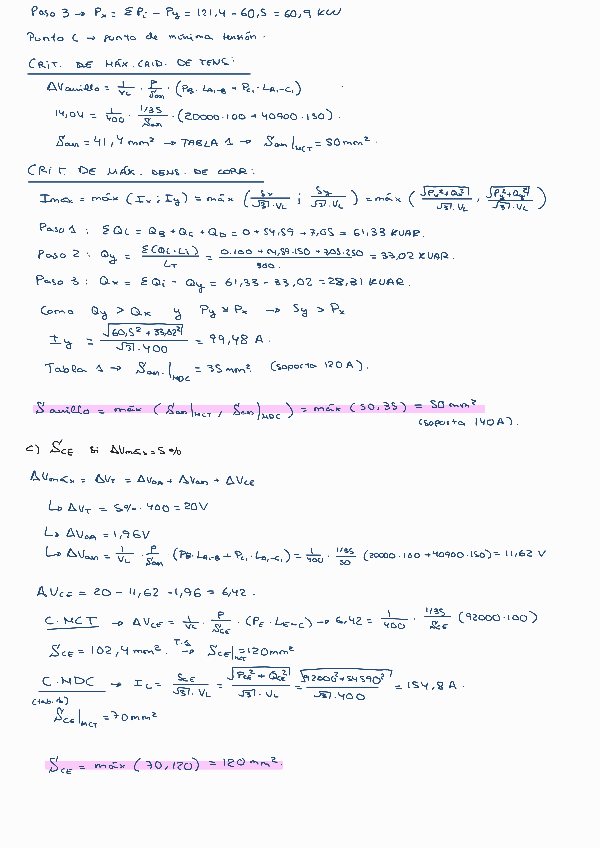 Paso 3 → Px = ΣPi - Py = 121,4 - 60,5 = 60,9 KW
Punto C → punto de mínima tensión.
CRIT. DE MÁX. CAID. DE TENS:
ΔVanillo = 1/VL · ρ/San · (PB · LA1-B + PC1 · LA1-C1)
14,04 = 1/400 · 1/35/San · (20000·100 + 40900·150)
San = 41,4 mm² → TABLA 1 → San|MCT = 50 mm²
CRIT. DE MÁX. DENS. DE CORR:
Imáx = máx (Ix ; Iy) = máx (Sx/√3·VL ; Sy/√3·VL) = máx (√Px²+Qx²/√3·VL , √Py²+Qy²/√3·VL)
Paso 1 : ΣQi = QB + QC + QD = 0 + 54,59 + 7,05 = 61,33 KVAR.
Paso 2 : Qy = Σ(Qi·Li)/LT = = 33,02 KVAR.
Paso 3 : Qx = ΣQi - Qy = 61,33 - 33,02 = 28,31 KVAR.
Como Qy > Qx y Py Px → Sy > Px
Iy = √60,5² + 33,02²/√3·400 = 99,48 A.
Tabla 1 → San.|MDC = 35 mm² (soporta 120 A).
Sanillo = máx (San|MCT , San|MDC) = máx (50, 35) = 50 mm²
(soporta 140 A).
c) SCE si ΔVmáx = 5%
ΔVmáx = ΔVT = ΔVOA + ΔVan + ΔVCE
↳ ΔVT = 5% · 400 = 20 V
↳ ΔVOA = 1,96 V
↳ ΔVan = 1/VL · ρ/San (PB · LA1-B + PC1 · LA1-C1) = 1/400 · 1/35/50 (20000·100 + 40900·150) = 11,62 V
ΔVCE = 20 - 11,62 - 1,96 = 6,42.
C.MCT → ΔVCE = 1/VL · ρ/SCE · (PE · LE-C) → 6,42 = 1/400 · 1/35/SCE (92000·100)
SCE = 102,4 mm². T.1 → SCE|MCT = 120 mm²
C.MDC → IL = SCE/√3·VL = √PCE² + QCE²/√3·VL = √92000² + 54590²/√3·400 = 154,8 A.
SCE|MCT = 70 mm²
SCE = máx (70, 120) = 120 mm².